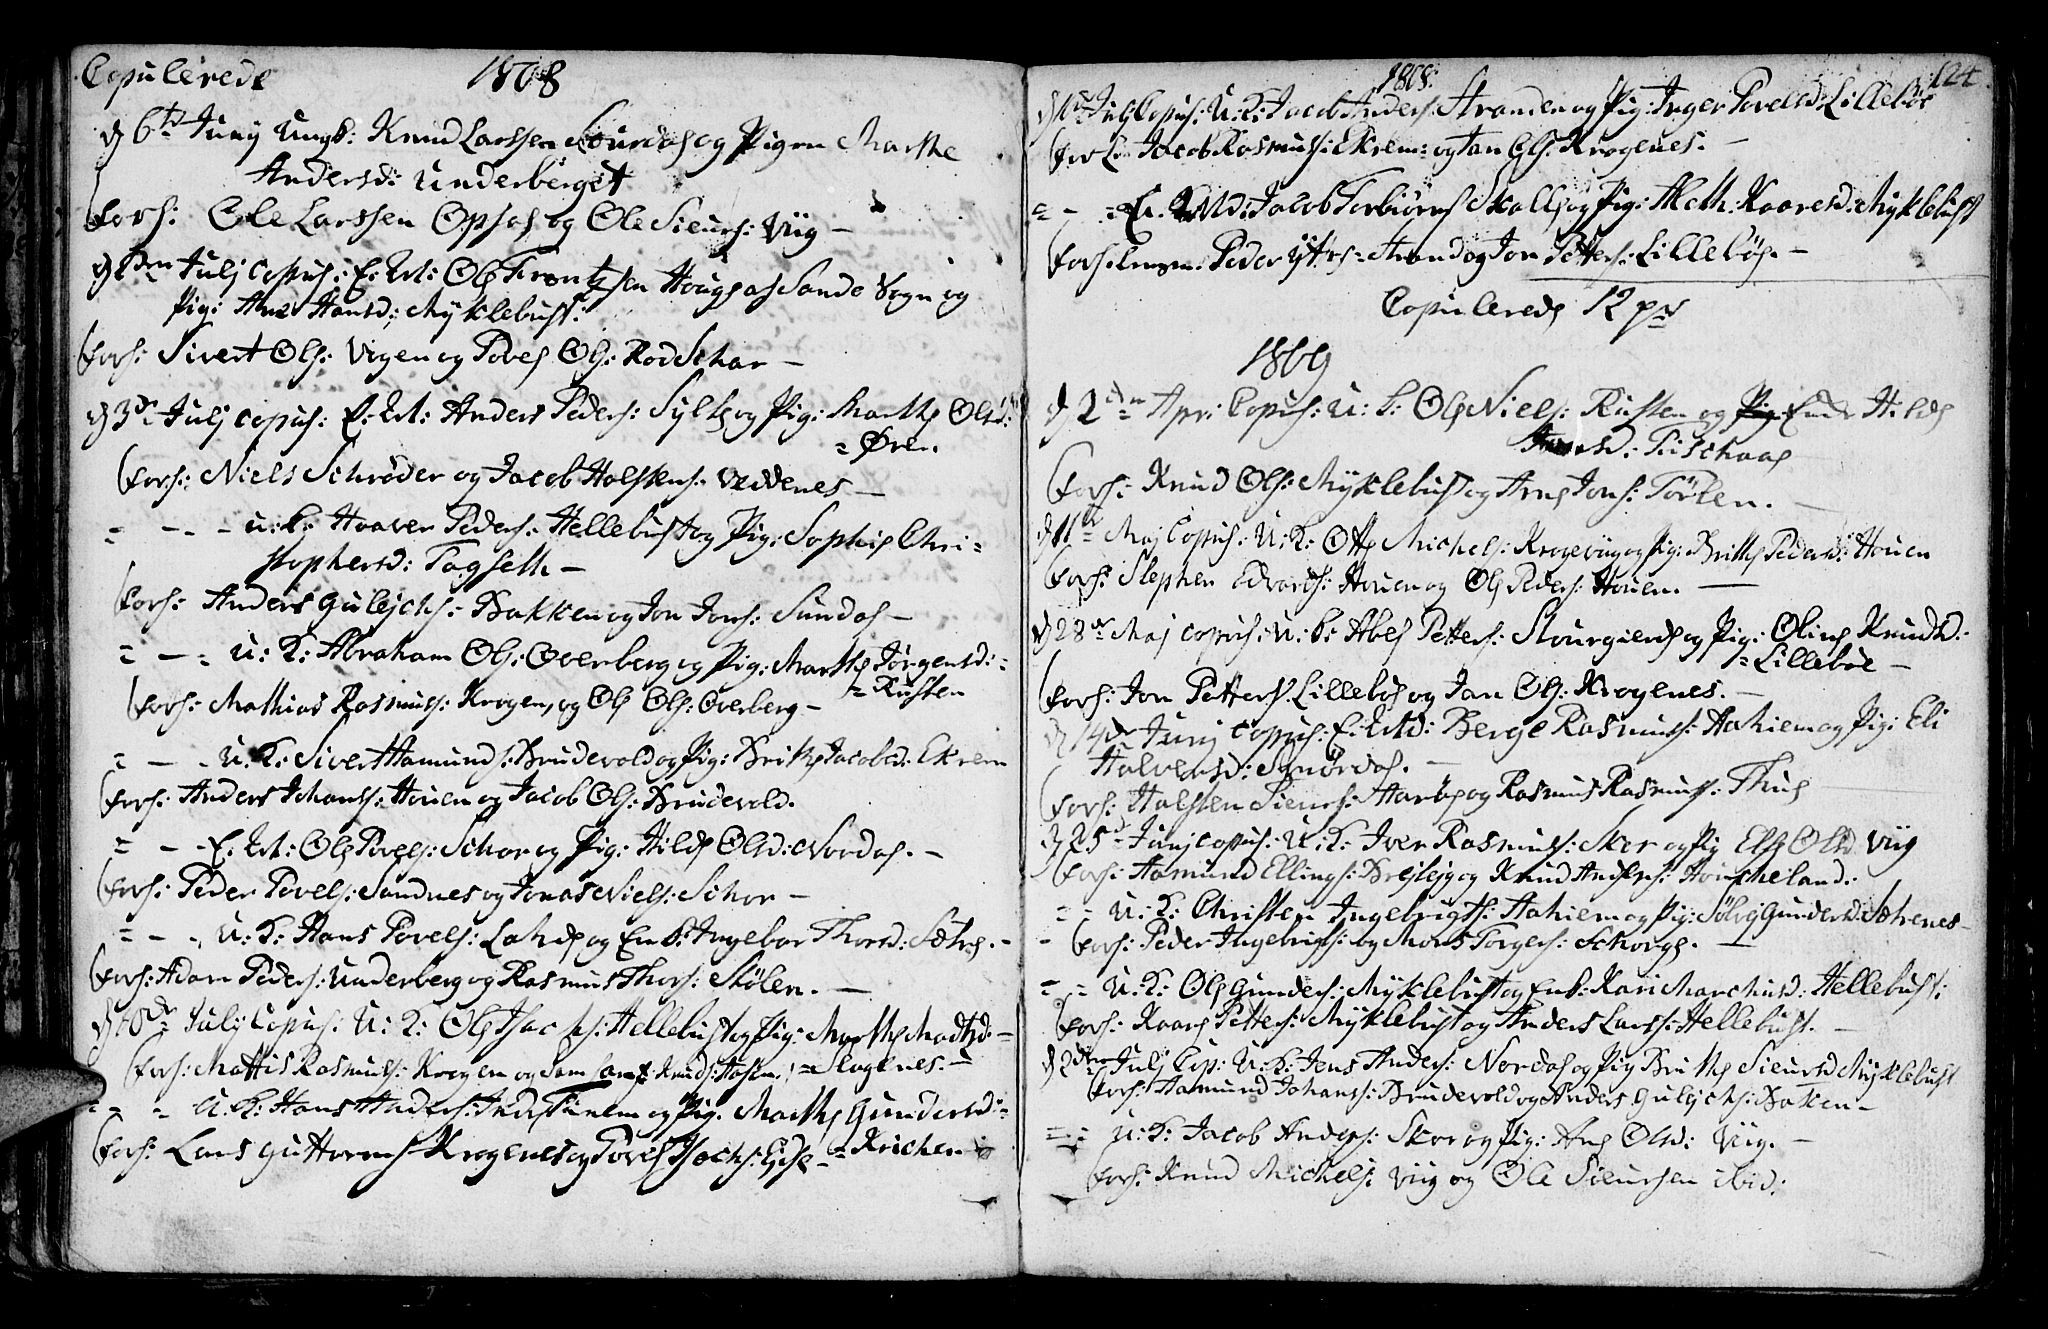 Copulerede 1808
d 6te Junij Ungk: Knud Larssen Lourdal og Pigen Marthe
Andersd: Underberget
Forl: Ole Larssen Opsal og Ole Sieurs: Viig –
Julj copul: E. M: Ole Frontzsen Houge af Sande Sogn og
Pig: Ane Hansd: Myklebust:
Forl: Sivert Ols: Vigen og Povel Ols: Rod Schar –
d 3de Julj copul: E. M: Anders Peders: Sylte og Pig: Marthe Olsd:
= Øren.
Forl: Niels Schrøder og Jacob Halstens: Veddenes –
= – – U: K: Haaver Peders: Hellebust og Pig: Sophie Chri=
stophersd: Tagseth –
Forl: Anders Gulejchs: Bakken og Jon Jons: Sundal –
= – = U: K: Abraham Ols: Overberg og Pig: Marthe Jørgensd:
= Rusten
Forl: Mathias Rasmus: Krogen, og Ole Ols: Overberg –
= – – U. K: Sivert Aamunds: Brudevold og Pig: Brithe Jacobsd: Ekrem
Forl: Anders Johans: Houen og Jacob Ols: Brudevold.
= – – E. M: Ole Povels: Schor og Pig: Hilde Olsd: Nordal. –
Forl: Peder Povels: Sandnes og Jonas Niels: Schor –
= – – U: K: Hans Povels: Lande og Enk: Ingebor Thorsd: Sætre. –
Forl: Adam Peders: Underberg og Rasmus Thors: Stølen. –
Julj Copul: U: K: Ole Isachs: Hellebust og Pig: Marthe Madtsd: –
Forl: Mattis Rasmus: Krogen og Knud: = Slagenes. –
= = = U. K: Hans Anders: Indre Tunem og Pig: Marthe Gundersd:
Forl: Lars Guttorms Krogenes og Povel Isachs: Eise – = Krichen
1808: 124
Julj Copul: U: K: Jacob Anders: Stranden og Pig: Inger Povelsd: Lillebøe
Forl: Jacob Rasmus: Ekrem og Jan Ols: Krogenes. –
= – = E. Md: Jacob Torbiørns Skalle og Pig: Kaaresd: Myklebust
Forl. Peder Strand og Jon Petters: Lillebøe. –
Copulerede 12 pr
1809
d 2den Apr: Copul: U: K: Ole Niels: Rusten og Enke Hilde
Forl: Knud Ols: Myklebust og Arne Jons: Tørlen. –
Maj Copul: U: K: Otte Michels: Krogeviig og Pig: Britthe Pedersd: Houen
Forl: Stephen Edvards: Houen og Ole Peders: Houen. –
d 28de Maj copul: U: K: Abel Petters: Stourgierde og Pig: Oline Knudsd:
= Lillebøe –
Forl: Jon Petters: Lillebøe og Jan Ols: Krogenes. –
d 14de Junj copul: E: Md: Berge Rasmus: Aahiem og Pig: Eli
Halvorsd: Snørdal. –
Forl: Halsten Sieurs: Harøe og Rasmus Rasmus: Thue
d 25de Junj copul: U: K: Iver Rasmus: Skor og Pig Else Olsd Viig
Forl: Aamund Ellings: Brejlejg og Knud Anders: Houscheland:
= = U: K: Christen Ingebrigts: Aahiem og Pig: Sølvj Gundersd: Sætrenes –
– Forl: Peder Ingebrigts: og Mons Torgers: Schorge. –
= = U: K: Ole Gunders: Myklebust og Enk: Kari Marchusd: Hellebust:
Forl: Kaare Petters: Myklebust og Anders Lars: Hellebust. –
d 2den Julj Cop: U: K: Jens Anders: Nordal og Pig Brithe Sieursd Myklebust
Forl: Aamund Johans: Brudevold og Anders Gulejchs: Bakken –
= = U: K: Jacob Anders: Skor og Pig: Ane Olsd: Viig. –
Forl: Knud Michels: Viig og Ole Sieursen ibid: